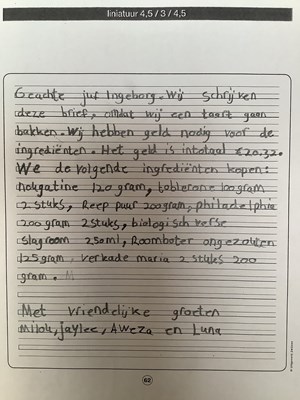 liniatuur 4,5 / 3 / 4,5
Geachte juf Ingeborg. Wij schrijven
deze brief, omdat wij een taart gaan
bakken. Wij hebben geld nodig voor de
ingrediënten. Het geld is intotaal €20,32.
We de volgende ingrediënten kopen:
nougatine 120 gram, toblerone 100 gram
2 stuks, Reep puur 200gram, philadelphia
200 gram 2 stuks, biologisch verse
slagroom 250ml, Roomboter ongezouten
125 gram, verkade maria 2 stuks 200
gram.
Met vriendelijke groeten
Milou, jaylee, Aweza en Luna
62